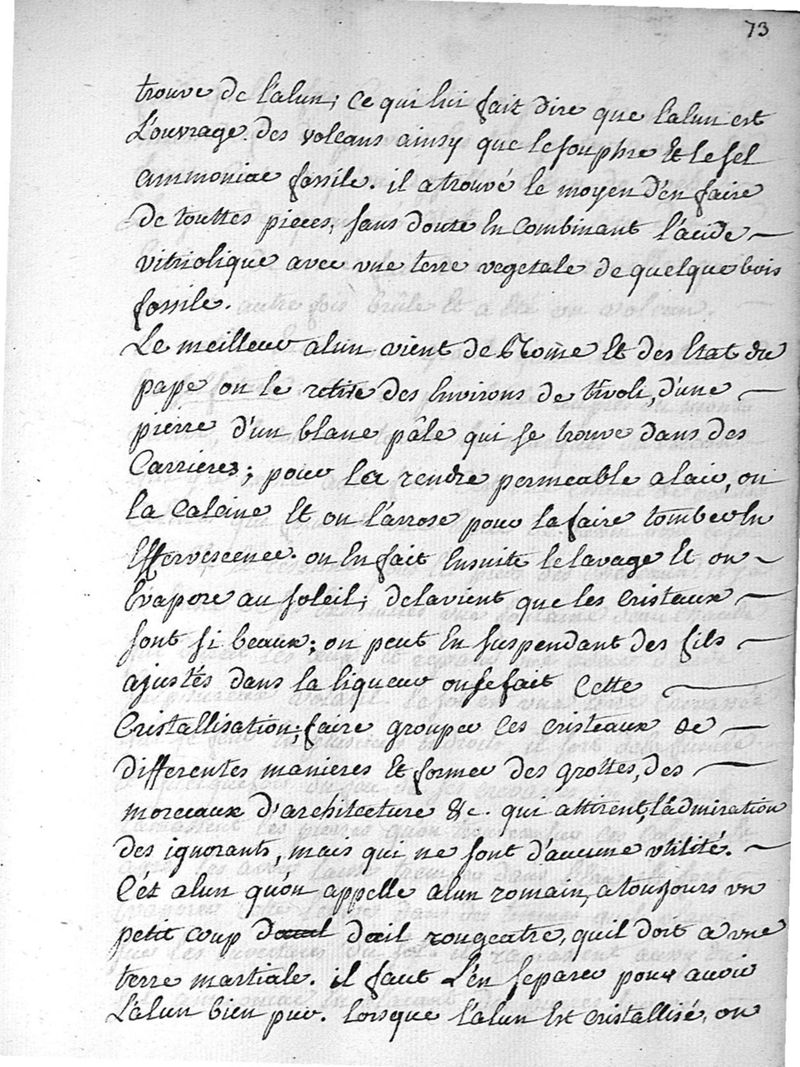 73
trouve de l'alun; ce qui lui fait dire que l'alun est
L'ouvrage des volcans ainsy que le souphre et le sel
ammoniac fossile. il a trouvé le moyen d'en faire
de touttes pieces, sans doute en combinant l'acide
vitriolique avec une terre vegetale de quelque bois
fossile.
Le meilleur alun vient de Rome et des Etat du
pape on le retire des environs de tivoli, d'une
pierre d'un blanc pâle qui se trouve dans des
Carrieres; pour la rendre permeable a lair, on
la Calcine et on l'arrose pour la faire tomber en
Effervescence. on en fait ensuite le lavage et on
Evapore au soleil; delavient que les cristeaux
sont si beaux; on peut en suspendant des fils
ajustés dans la liqueur ou se fait Cette
Cristallisation, faire grouper ces cristeaux de
differentes manieres et former des grottes, des
morceaux d'architecture &c. qui attirent l'admiration
des ignorants, mais qui ne sont d'aucune utilité.
C'ét alun qu'on appelle alun romain, a toujours un
petit coup d'œil rougeatre, quil doit a une
terre martiale. il faut L'en separer pour avoir
L'alun bien pur. lorsque l'alun est cristallisé, on